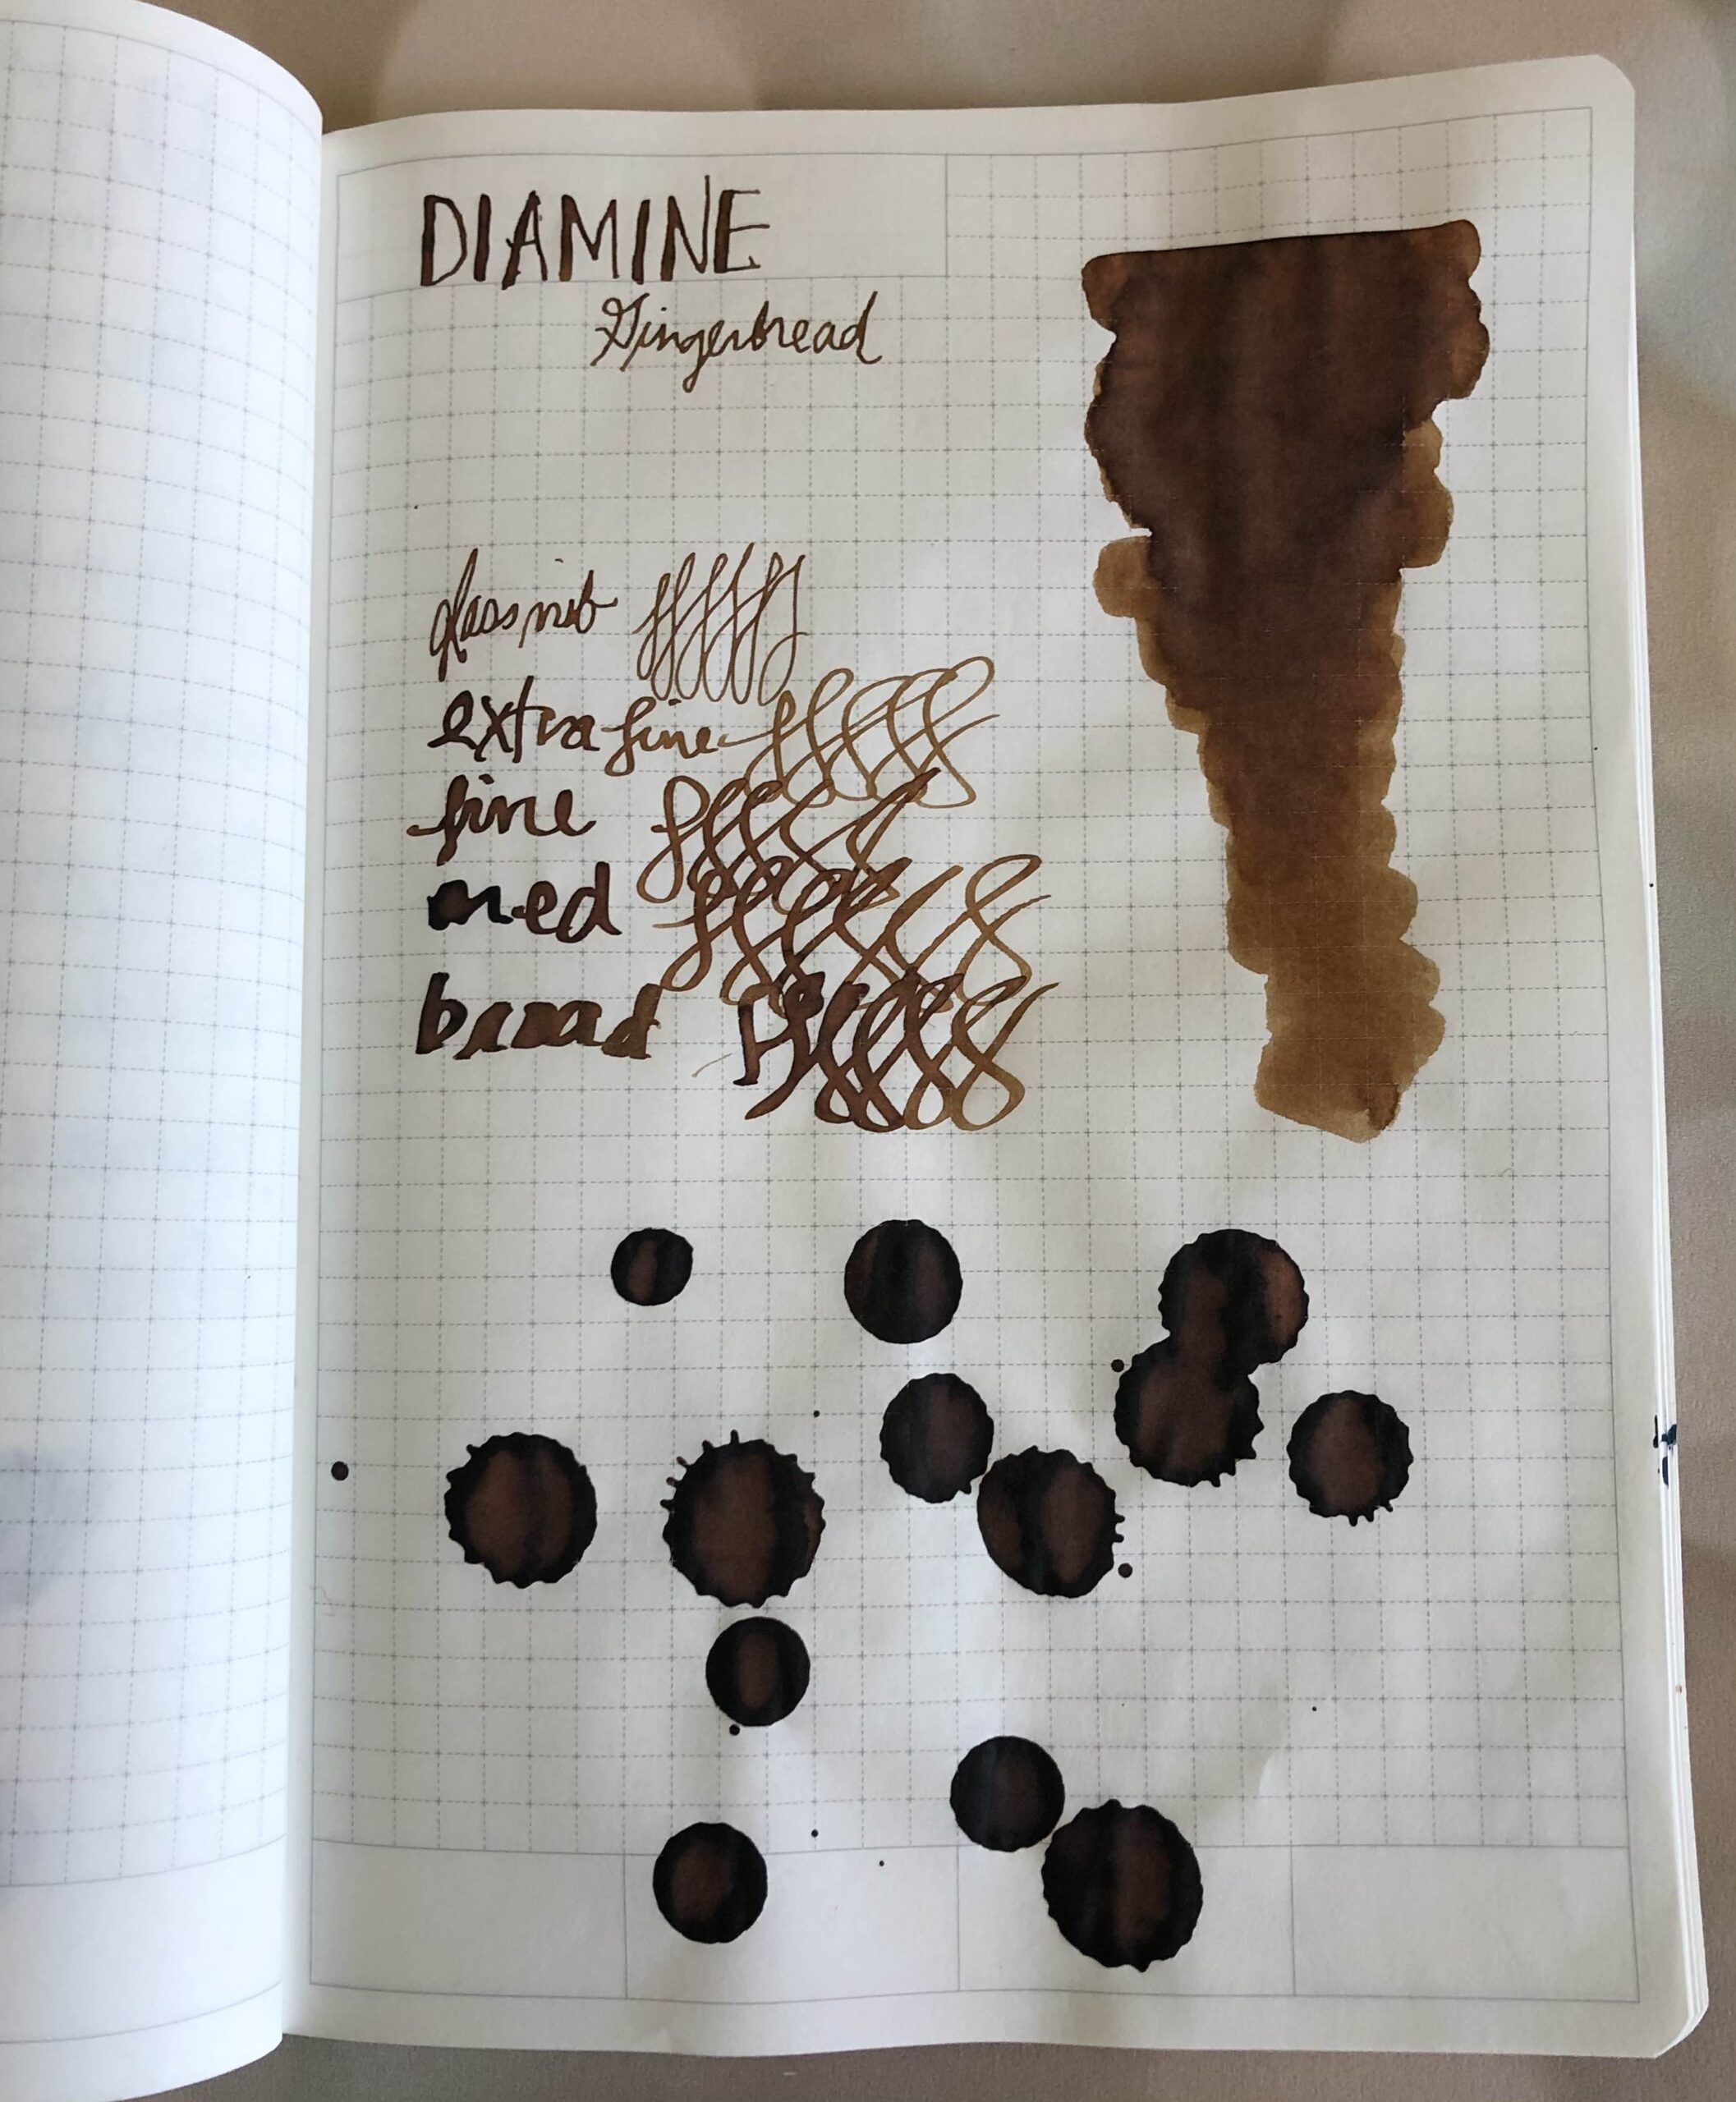 DIAMINE
Gingerbread
glass nib
extra fine
fine
med
broad